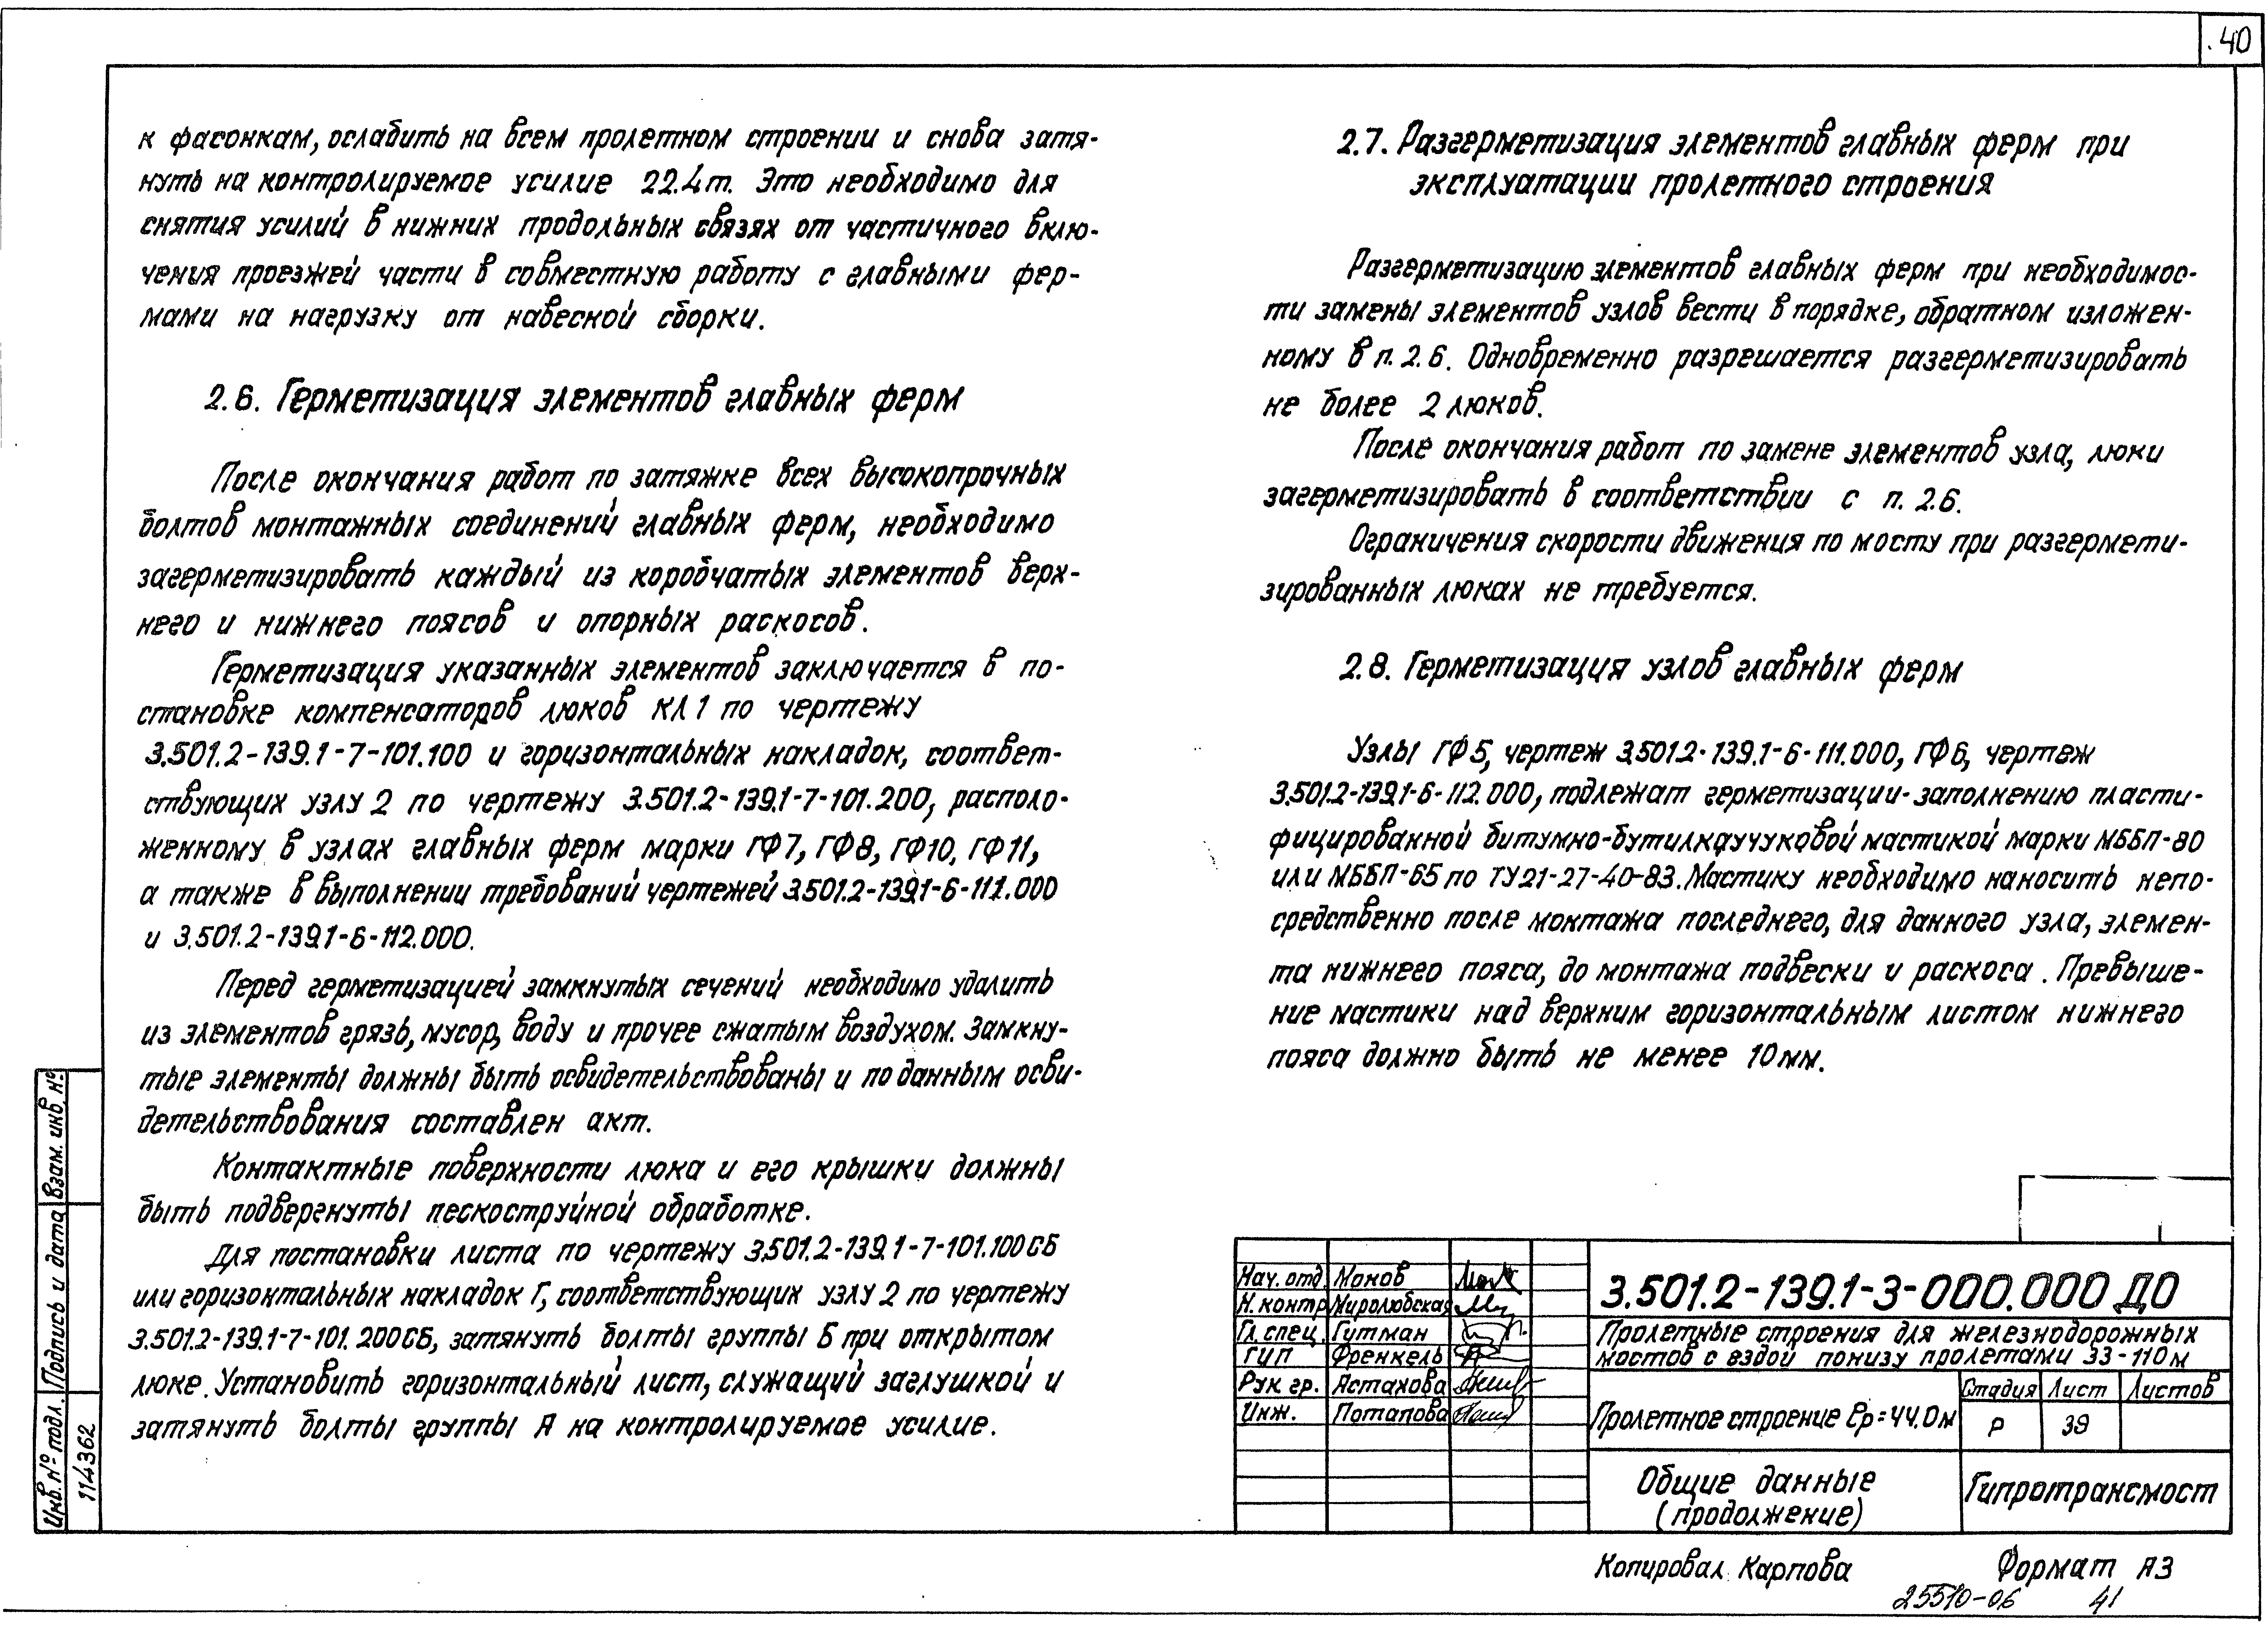 40
к фасонкам, ослабить на всем пролетном строении и снова затя-
нуть на контролируемое усилие 22.4т. Это необходимо для
снятия усилий в нижних продольных связях от частичного вклю-
чения проезжей части в совместную работу с главными фер-
мами на нагрузку от навесной сборки.
2.6. Герметизация элементов главных ферм
После окончания работ по затяжке всех высокопрочных
болтов монтажных соединений главных ферм, необходимо
загерметизировать каждый из коробчатых элементов верх-
него и нижнего поясов и опорных раскосов.
Герметизация указанных элементов заключается в по-
становке компенсаторов люков КЛ1 по чертежу
3.501.2-139.1-7-101.100 и горизонтальных накладок, соответ-
ствующих узлу 2 по чертежу 3.501.2-139.1-7-101.200, располо-
женному в узлах главных ферм марки ГФ7, ГФ8, ГФ10, ГФ11,
а также в выполнении требований чертежей 3.501.2-139.1-6-111.000
и 3.501.2-139.1-6-112.000.
Перед герметизацией замкнутых сечений необходимо удалить
из элементов грязь, мусор, воду и прочее сжатым воздухом. Замкну-
тые элементы должны быть освидетельствованы и по данным осви-
детельствования составлен акт.
Контактные поверхности люка и его крышки должны
быть подвергнуты пескоструйной обработке.
Для постановки листа по чертежу 3.501.2-139.1-7-101.100СБ
или горизонтальных накладок Г, соответствующих узлу 2 по чертежу
3.501.2-139.1-7-101.200СБ, затянуть болты группы Б при открытом
люке. Установить горизонтальный лист, служащий заглушкой и
затянуть болты группы А на контролируемое усилие.
2.7. Разгерметизация элементов главных ферм при
эксплуатации пролетного строения
Разгерметизацию элементов главных ферм при необходимос-
ти замены элементов узлов вести в порядке, обратном изложен-
ному в п. 2.6. Одновременно разрешается разгерметизировать
не более 2 люков.
После окончания работ по замене элементов узла, люки
загерметизировать в соответствии с п. 2.6.
Ограничения скорости движения по мосту при разгермети-
зированных люках не требуется.
2.8. Герметизация узлов главных ферм
Узлы ГФ5, чертеж 3.501.2-139.1-6-111.000, ГФ6, чертеж
3.501.2-139.1-6-112.000, подлежат герметизации-заполнению пласти-
фицированной битумно-бутилкаучуковой мастикой марки МББП-80
или МББП-65 по ТУ21-27-40-83. Мастику необходимо наносить непо-
средственно после монтажа последнего, для данного узла, элемен-
та нижнего пояса, до монтажа подвески и раскоса. Превыше-
ние мастики над верхним горизонтальным листом нижнего
пояса должно быть не менее 10мм.
Инв. № подл. Подпись и дата Взам. инв. №
114362
Нач. отд. Монов
Н. контр. Миролюбская
Гл. спец. Гутман
ГИП Френкель
Рук. гр. Астахова
Инж. Потапова
3.501.2-139.1-3-000.000 ДО
Пролетные строения для железнодорожных
мостов с ездой понизу пролетами 33-110м
Пролетное строение ℓр=44.0м
Стадия Лист Листов
Р 39
Общие данные
(продолжение)
Гипротрансмост
Копировал Карпова Формат А3
25510-06 41